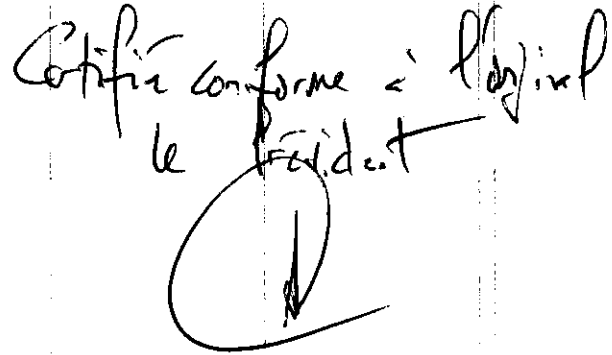 Certifié conforme à l'original
le Président